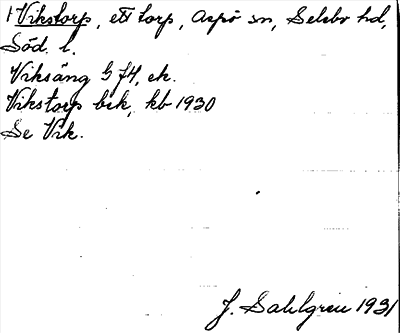 1 Vikstorp, ett torp, Aspö sn, Selebo hd,
Söd. l.
Viksäng G 74, ek.
Vikstorp bek, kb 1930
Se Vik.
J. Sahlgren 1931